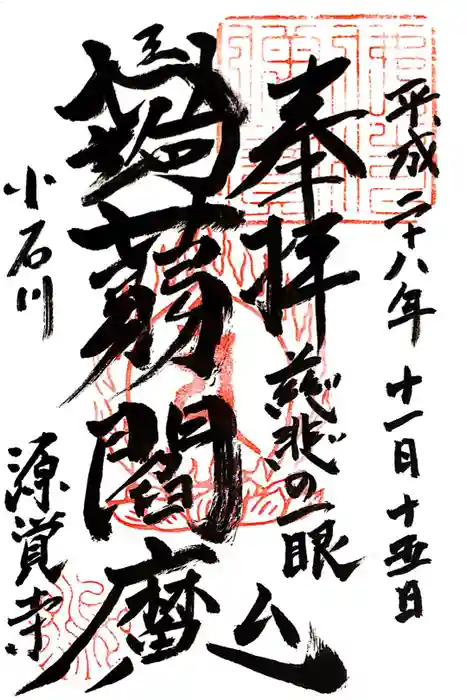 平成二十八年 十一月十五日
奉拝
慈悲の一眼
蒟蒻閻魔
小石川
源覚寺